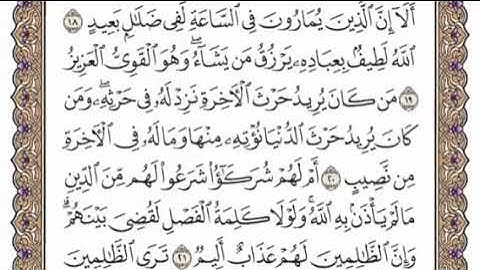 أَلَآ إِنَّ ٱلَّذِينَ يُمَارُونَ فِى ٱلسَّاعَةِ لَفِى ضَلَٰلٍۭ بَعِيدٍ ١٨
ٱللَّهُ لَطِيفٌۢ بِعِبَادِهِۦ يَرْزُقُ مَن يَشَآءُۖ وَهُوَ ٱلْقَوِىُّ ٱلْعَزِيزُ
١٩ مَن كَانَ يُرِيدُ حَرْثَ ٱلْأَخِرَةِ نَزِدْ لَهُۥ فِى حَرْثِهِۦۖ وَمَن
كَانَ يُرِيدُ حَرْثَ ٱلدُّنْيَا نُؤْتِهِۦ مِنْهَا وَمَا لَهُۥ فِى ٱلْأَخِرَةِ
مِن نَّصِيبٍ ٢٠ أَمْ لَهُمْ شُرَكَٰٓؤُا۟ شَرَعُوا۟ لَهُم مِّنَ ٱلدِّينِ
مَا لَمْ يَأْذَنۢ بِهِ ٱللَّهُۚ وَلَوْلَا كَلِمَةُ ٱلْفَصْلِ لَقُضِىَ بَيْنَهُمْۗ
وَإِنَّ ٱلظَّٰلِمِينَ لَهُمْ عَذَابٌ أَلِيمٌ ٢١ تَرَى ٱلظَّٰلِمِينَ